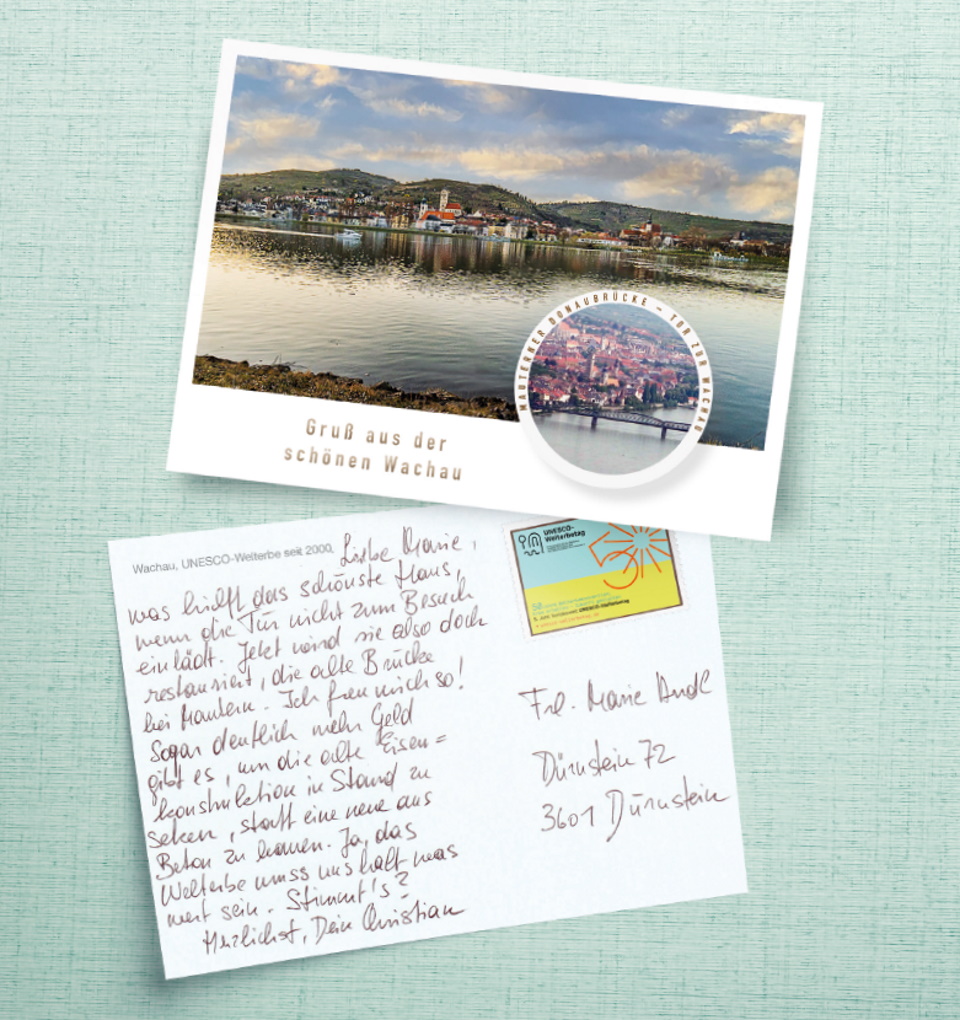 MAUTERNER DONAUBRÜCKE – TOR ZUR WACHAU
Gruß aus der
schönen Wachau
Wachau, UNESCO-Welterbe seit 2000
Liebe Marie,
was hilft das schönste Haus,
wenn die Tür nicht zum Besuch
einlädt. Jetzt wird sie also doch
restauriert, die alte Brücke
bei Mautern. Ich freu mich so!
Sogar deutlich mehr Geld
gibt es, um die alte Eisen=
konstruktion in Stand zu
setzen, statt eine neue aus
Beton zu bauen. Ja, das
Welterbe muss uns halt was
wert sein. Stimmt's?
Herzlichst, Dein Christian
UNESCO-
Welterbetag
Frl. Marie Andl
Dürnstein 72
3601 Dürnstein